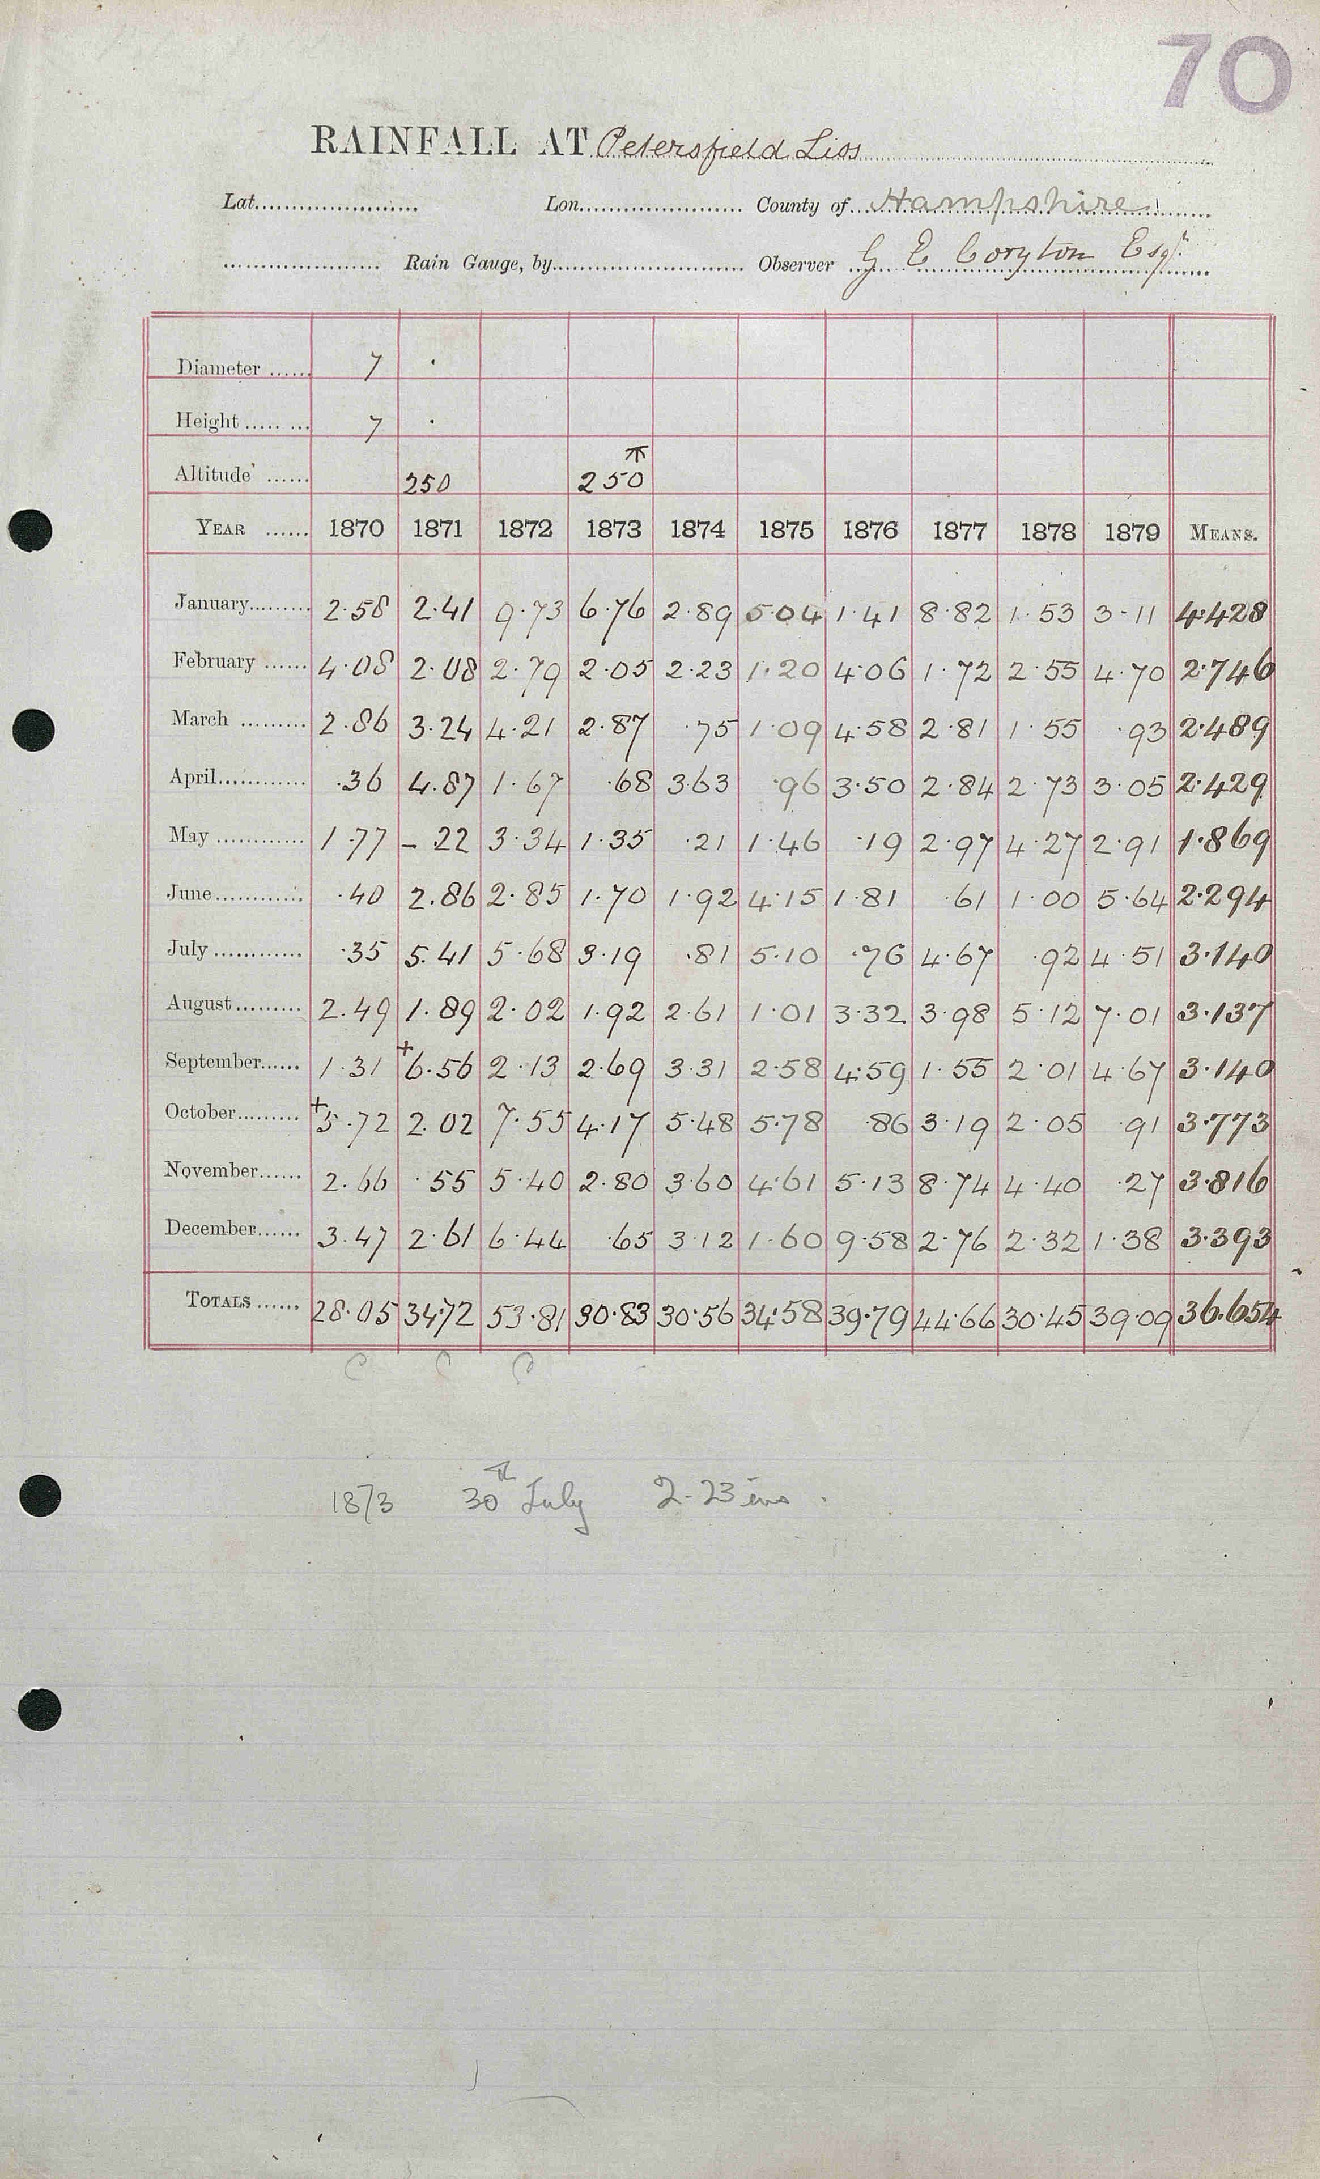 70
RAINFALL AT Petersfield Liss
Lat. Lon. County of Hampshire
Rain Gauge, by Observer G E Coryton Esqr.
Diameter ...... 7 ·
Height ........ 7 ·
Altitude ...... 250 250
YEAR ...... 1870 1871 1872 1873 1874 1875 1876 1877 1878 1879 MEANS.
January......... 2.58 2.41 9.73 6.76 2.89 5.04 1.41 8.82 1.53 3.11 4.428
February ...... 4.08 2.08 2.79 2.05 2.23 1.20 4.06 1.72 2.55 4.70 2.746
March ......... 2.86 3.24 4.21 2.87 .75 1.09 4.58 2.81 1.55 .93 2.489
April............ .36 4.87 1.67 .68 3.63 .96 3.50 2.84 2.73 3.05 2.429
May ............ 1.77 - .22 3.34 1.35 .21 1.46 .19 2.97 4.27 2.91 1.869
June............ .40 2.86 2.85 1.70 1.92 4.15 1.81 .61 1.00 5.64 2.294
July ............ .35 5.41 5.68 3.19 .81 5.10 .76 4.67 .92 4.51 3.140
August......... 2.49 1.89 2.02 1.92 2.61 1.01 3.32 3.98 5.12 7.01 3.137
September...... 1.31 +6.56 2.13 2.69 3.31 2.58 4.59 1.55 2.01 4.67 3.140
October......... +5.72 2.02 7.55 4.17 5.48 5.78 .86 3.19 2.05 .91 3.773
November...... 2.66 .55 5.40 2.80 3.60 4.61 5.13 8.74 4.40 .27 3.816
December...... 3.47 2.61 6.44 .65 3.12 1.60 9.58 2.76 2.32 1.38 3.393
TOTALS ...... 28.05 34.72 53.81 30.83 30.56 34.58 39.79 44.66 30.45 39.09 36.654
C C C
1873 30th July 2.23 ins.